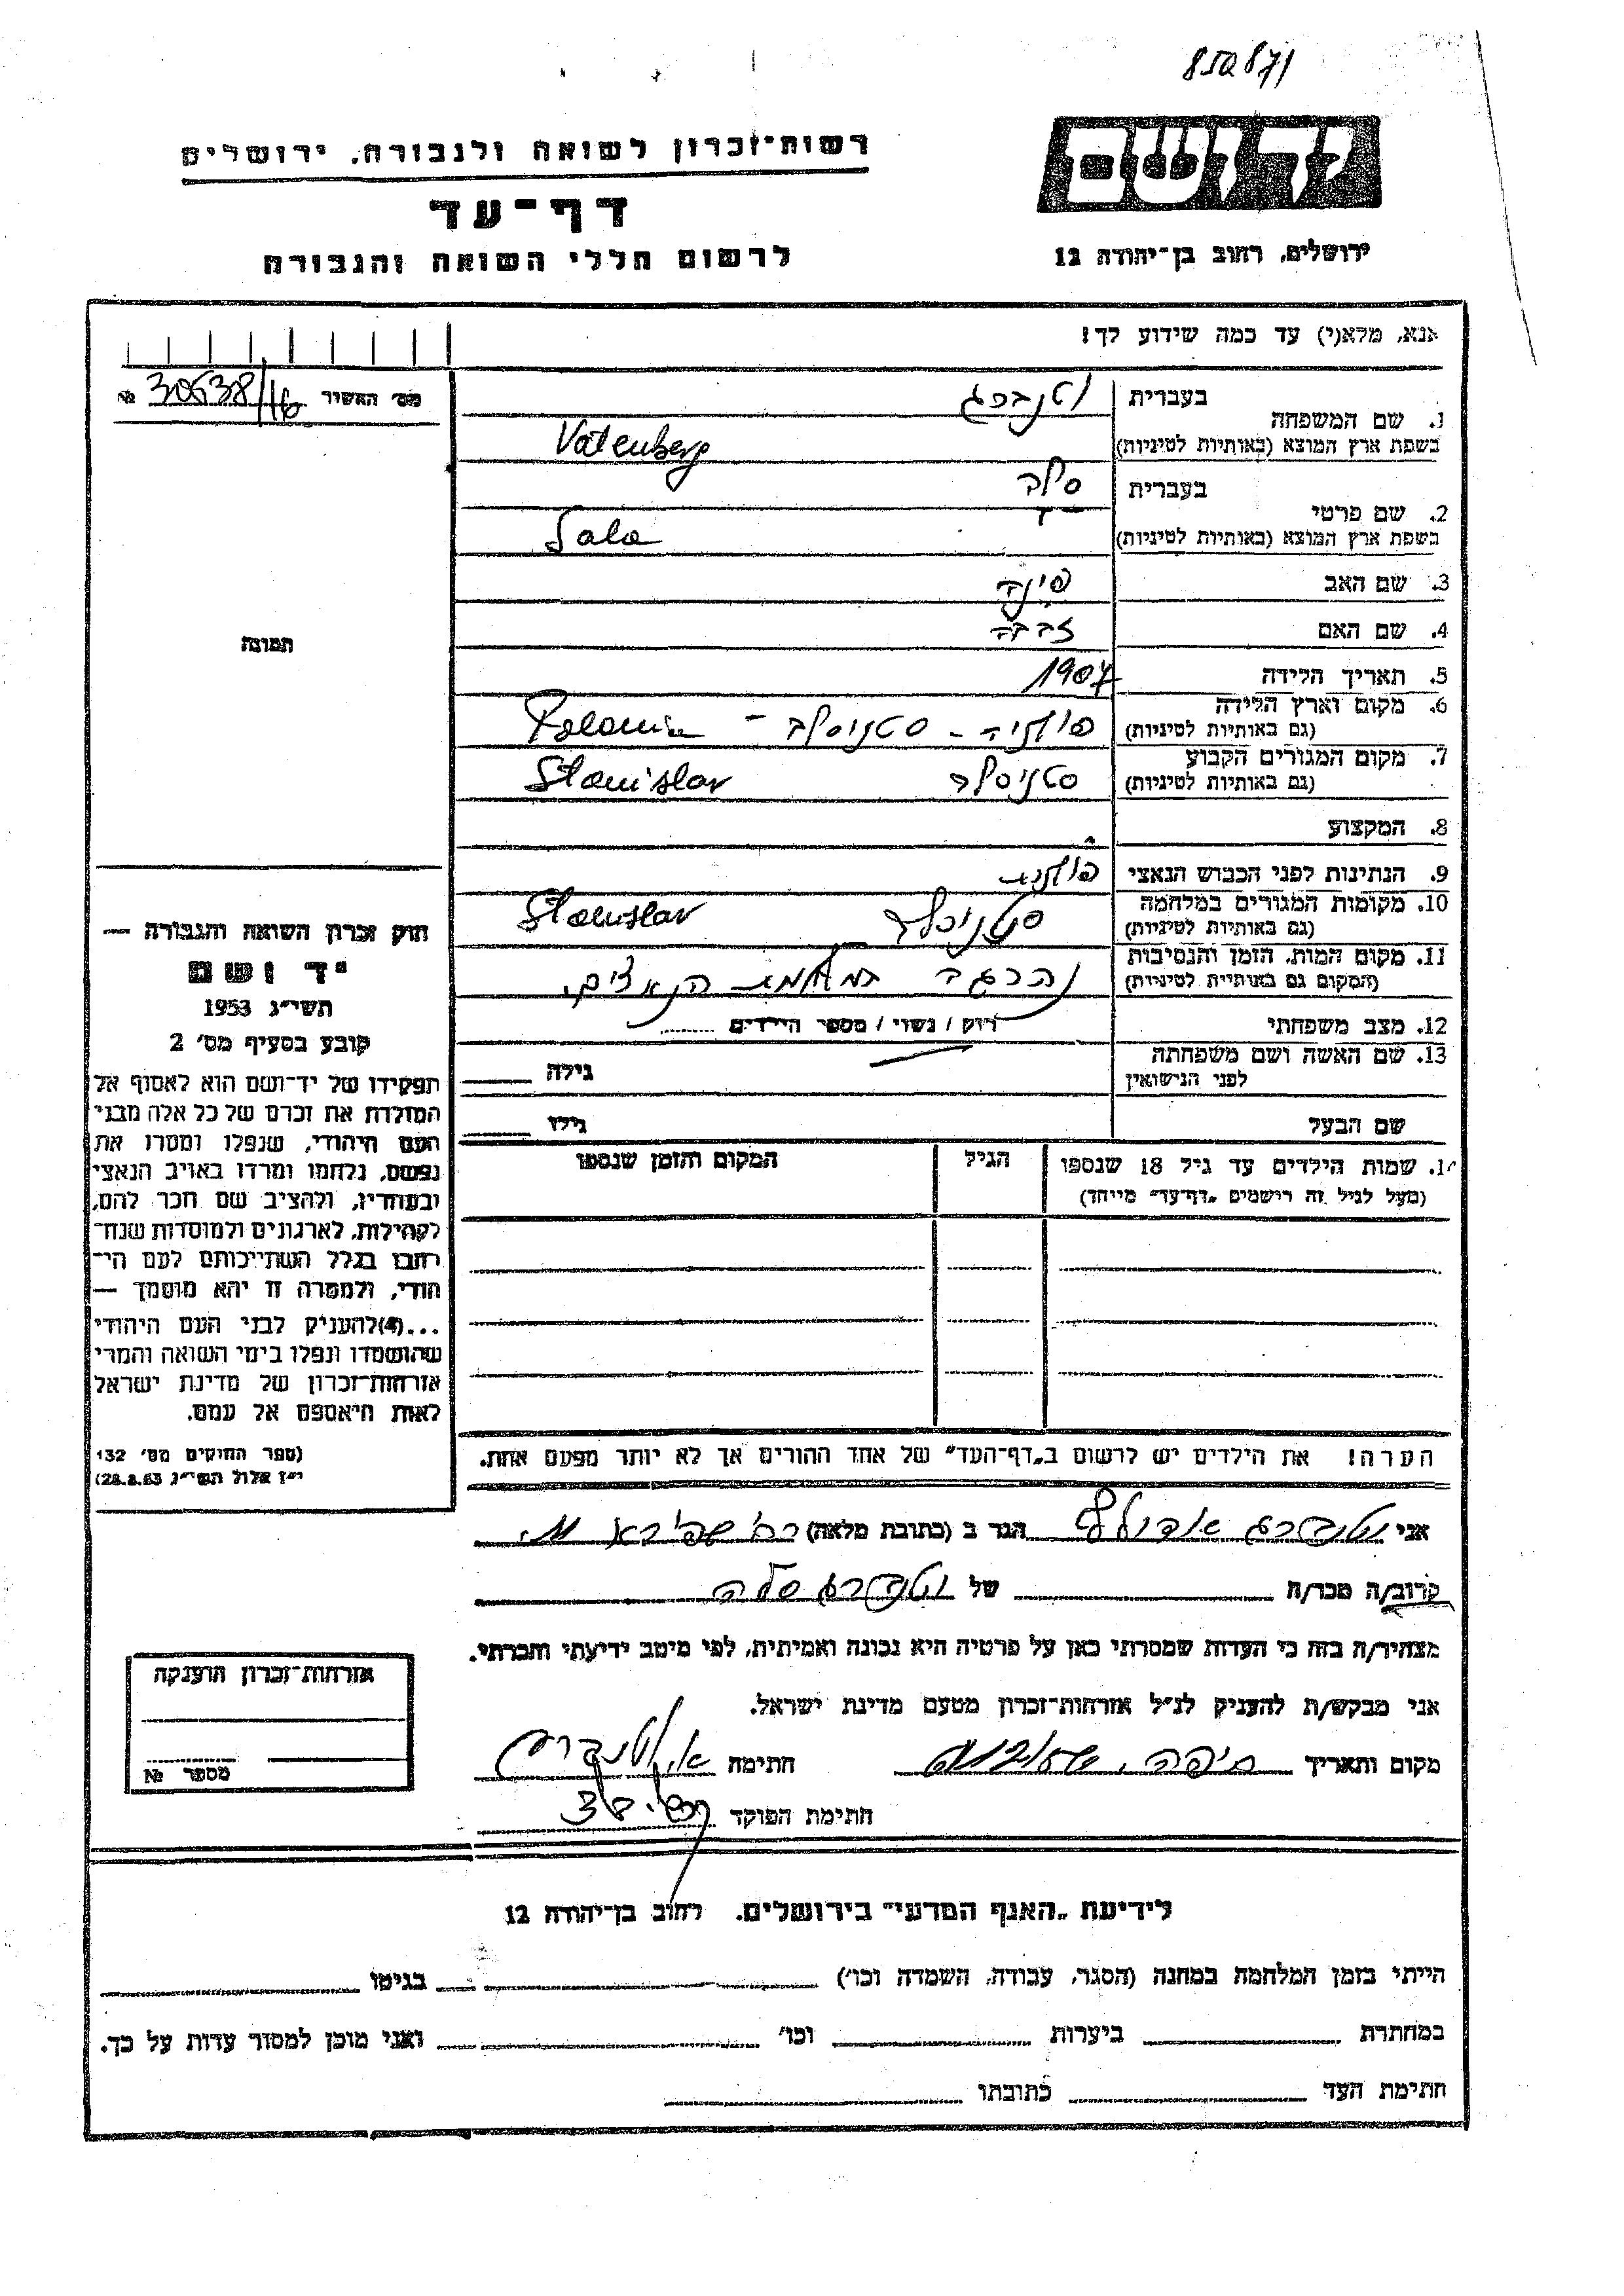 850871
רשות־זכרון לשואה ולגבורה, ירושלים
יד ושם
דף־עד
לרשום חללי השואה והגבורה
ירושלים, רחוב בן־יהודה 12
אנא, מלא(י) עד כמה שידוע לך!
מס׳ האשיר 30638/16 №
1. שם המשפחה
בעברית וטנברג
בשפת ארץ המוצא (באותיות לטיניות) Vatenberg
2. שם פרטי
בעברית סלה
בשפת ארץ המוצא (באותיות לטיניות) Sala
3. שם האב
4. שם האם
5. תאריך הלידה 1907
6. מקום וארץ הלידה
(גם באותיות לטיניות) פולניה - סטניסלב - Polonia
7. מקום המגורים הקבוע
(גם באותיות לטיניות) סטניסלב Stanislav
8. המקצוע
9. הנתינות לפני הכבוש הנאצי פולנית
10. מקומות המגורים במלחמה
(גם באותיות לטיניות) סטניסלב Stanislav
11. מקום המות, הזמן והנסיבות
(המקום גם באותיות לטיניות) נהרגה במלחמת הנאצים.
12. מצב משפחתי רוק / נשוי / מספר הילדים
13. שם האשה ושם משפחתה
לפני הנישואין גילה
שם הבעל גילו
14. שמות הילדים עד גיל 18 שנספו הגיל המקום והזמן שנספו
(מעל לגיל זה רושמים „דף־עד״ מייחד)
הערה! את הילדים יש לרשום ב„דף־העד״ של אחד ההורים אך לא יותר מפעם אחת.
תמונה
חוק זכרון השואה והגבורה —
יד ושם
תשי״ג 1953
קובע בסעיף מס׳ 2
תפקידו של יד־ושם הוא לאסוף אל
המולדת את זכרם של כל אלה מבני
העם היהודי, שנפלו ומסרו את
נפשם, נלחמו ומרדו באויב הנאצי
ובעוזריו, ולהציב שם וזכר להם,
לקהילות, לארגונים ולמוסדות שנח־
רבו בגלל השתייכותם לעם הי־
הודי, ולמטרה זו יהא מוסמך —
...(4) להעניק לבני העם היהודי
שהושמדו ונפלו בימי השואה והמרי
אזרחות־זכרון של מדינת ישראל
לאות היאספם אל עמם.
(ספר החוקים מס׳ 132
י״ז אלול תשי״ג 28.8.53)
אני וטנברג אדולף הגר ב (כתובת מלאה) רח׳ שפירא
קרוב/ה מכר/ה של וטנברג סלה
מצהיר/ה בזה כי העדות שמסרתי כאן על פרטיה היא נכונה ואמיתית, לפי מיטב ידיעתי והכרתי.
אני מבקש/ת להעניק לנ״ל אזרחות־זכרון מטעם מדינת ישראל.
מקום ותאריך חיפה, חתימה א. וטנברג
חתימת הפוקד
אזרחות־זכרון הוענקה
מספר №
לידיעת „האגף המדעי״ בירושלים, רחוב בן־יהודה 12
הייתי בזמן המלחמה במחנה (הסגר, עבודה, השמדה וכו׳) בגיטו
במחתרת ביערות וכו׳ ואני מוכן למסור עדות על כך.
חתימת העד כתובתו